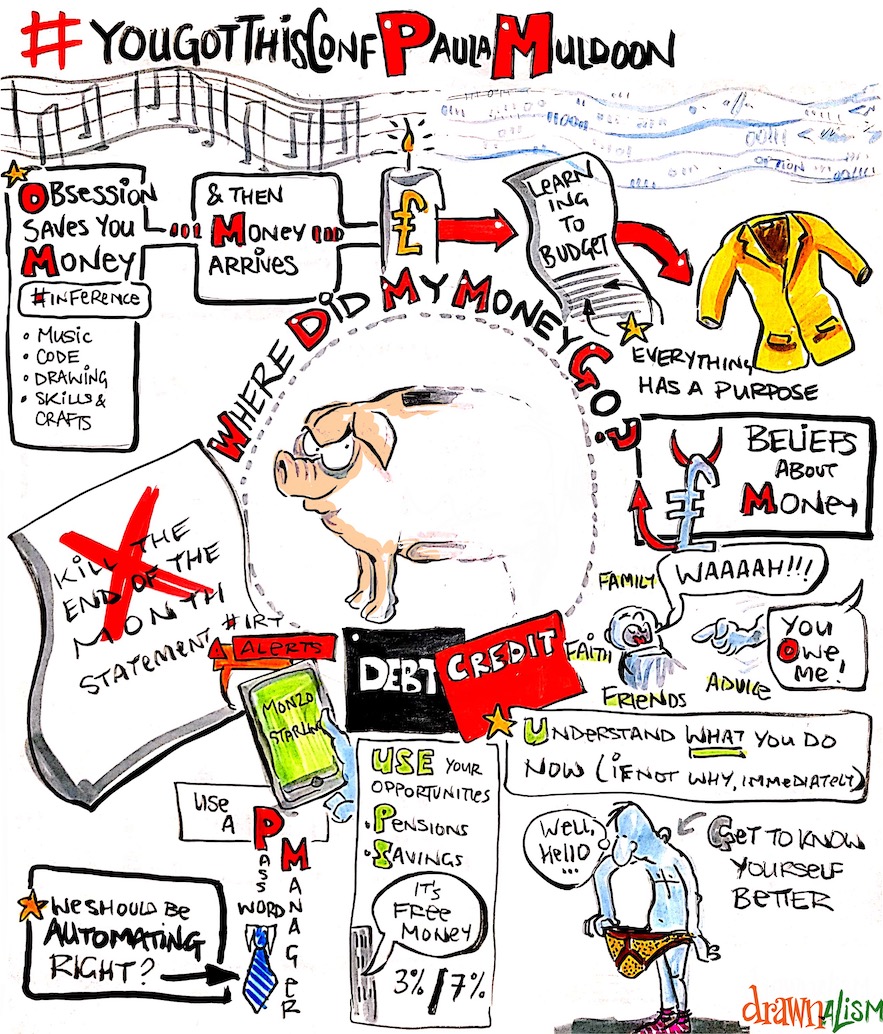 #YOUGOTTHISCONF PAULA MULDOON
OBSESSION
SAVES YOU
MONEY
#INFERENCE
• MUSIC
• CODE
• DRAWING
• SKILLS &
CRAFTS
& THEN
MONEY
ARRIVES
£
LEARN
ING
TO
BUDGET
EVERYTHING
HAS A PURPOSE
WHERE DID MY MONEY GO?
BELIEFS
ABOUT
MONEY
£
KILL THE
END OF THE
MONTH
STATEMENT
#IRT
ALERTS
MONZO
STARLING
DEBT
CREDIT
FAMILY
WAAAAH!!!
FAITH
FRIENDS
ADVICE
YOU
OWE
ME!
UNDERSTAND WHAT YOU DO
NOW (IF NOT WHY, IMMEDIATELY)
USE YOUR
OPPORTUNITIES
• PENSIONS
• SAVINGS
IT'S
FREE
MONEY
3% / 7%
USE
A
PASSWORD
MANAGER
WE SHOULD BE
AUTOMATING
RIGHT?
WELL,
HELLO
...
GET TO KNOW
YOURSELF
BETTER
drawnALISM